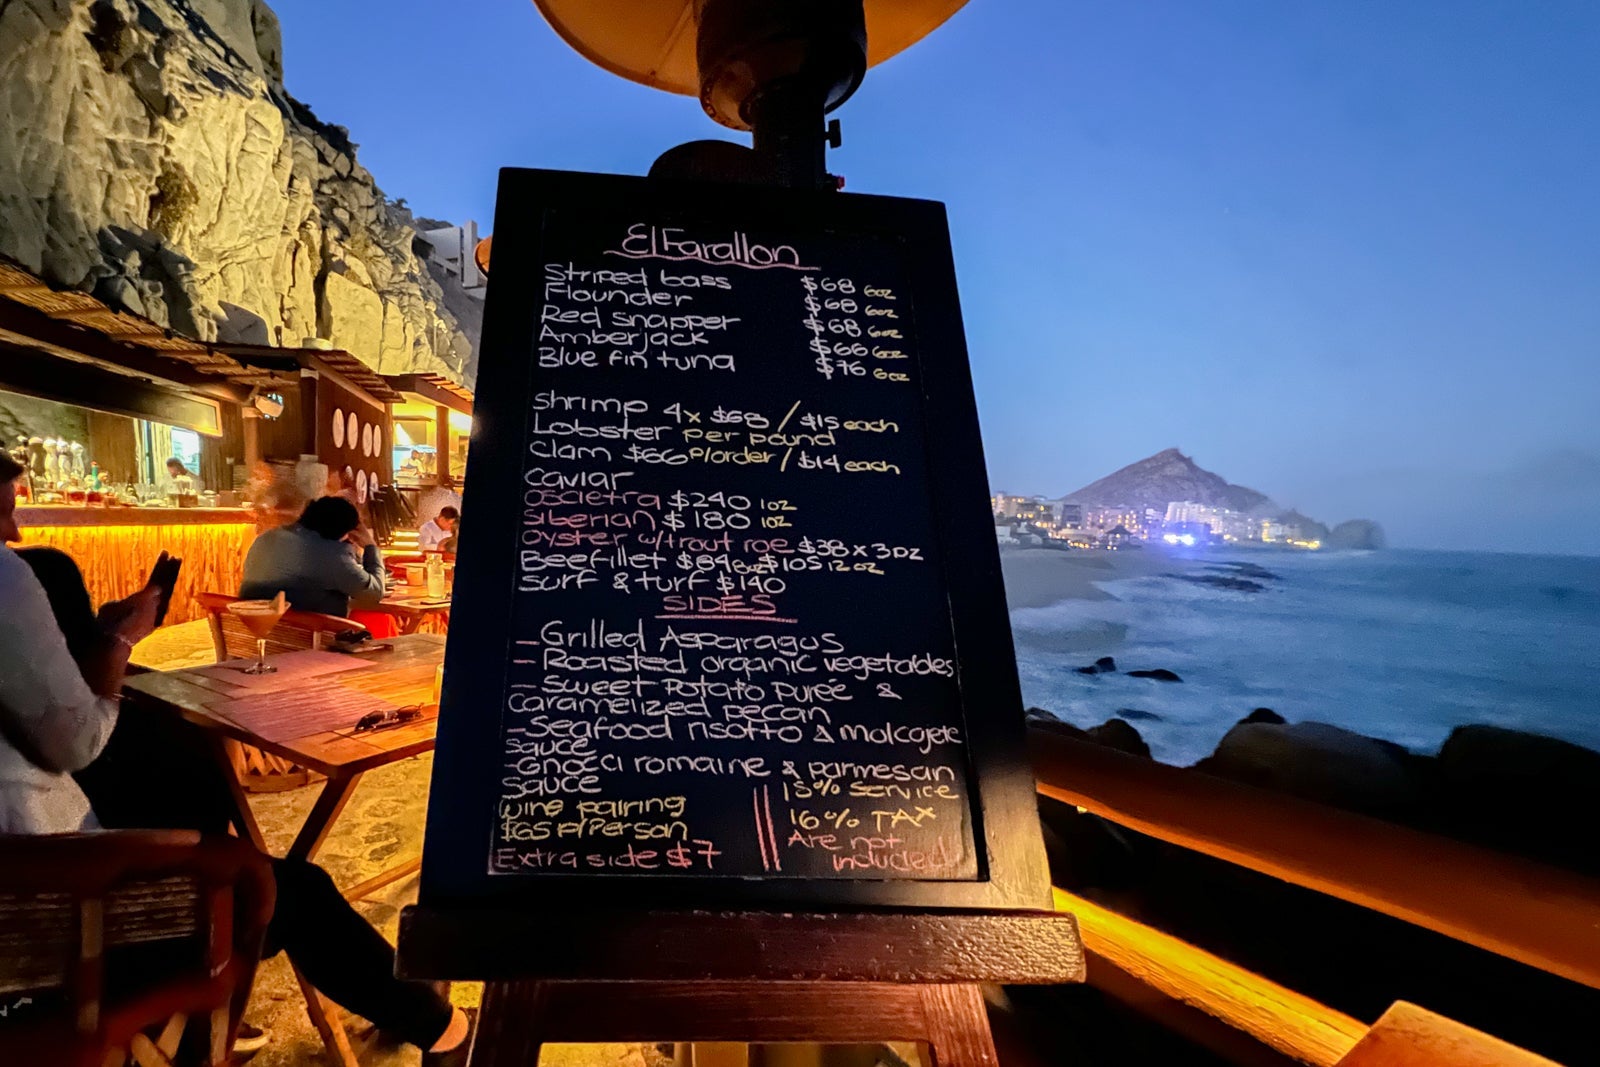 El Farallon
Striped bass $68 6oz
Flounder $68 6oz
Red snapper $68 6oz
Amberjack $66 6oz
Blue fin tuna $76 6oz
Shrimp 4x $68 / $15 each
Lobster per pound
Clam $66 p/order / $14 each
Caviar
Oscietra $240 1oz
Siberian $180 1oz
Oyster w/trout roe $38 x 3pz
Beef fillet $84 8oz $105 12oz
Surf & turf $140
SIDES
- Grilled Asparagus
- Roasted organic vegetables
- Sweet Potato purée &
Caramelized pecan
- Seafood risotto & molcajete
sauce
- Gnocci romaine & parmesan
sauce
15% service
Wine pairing
$65 p/person
16% TAX
Are not
included
Extra side $7